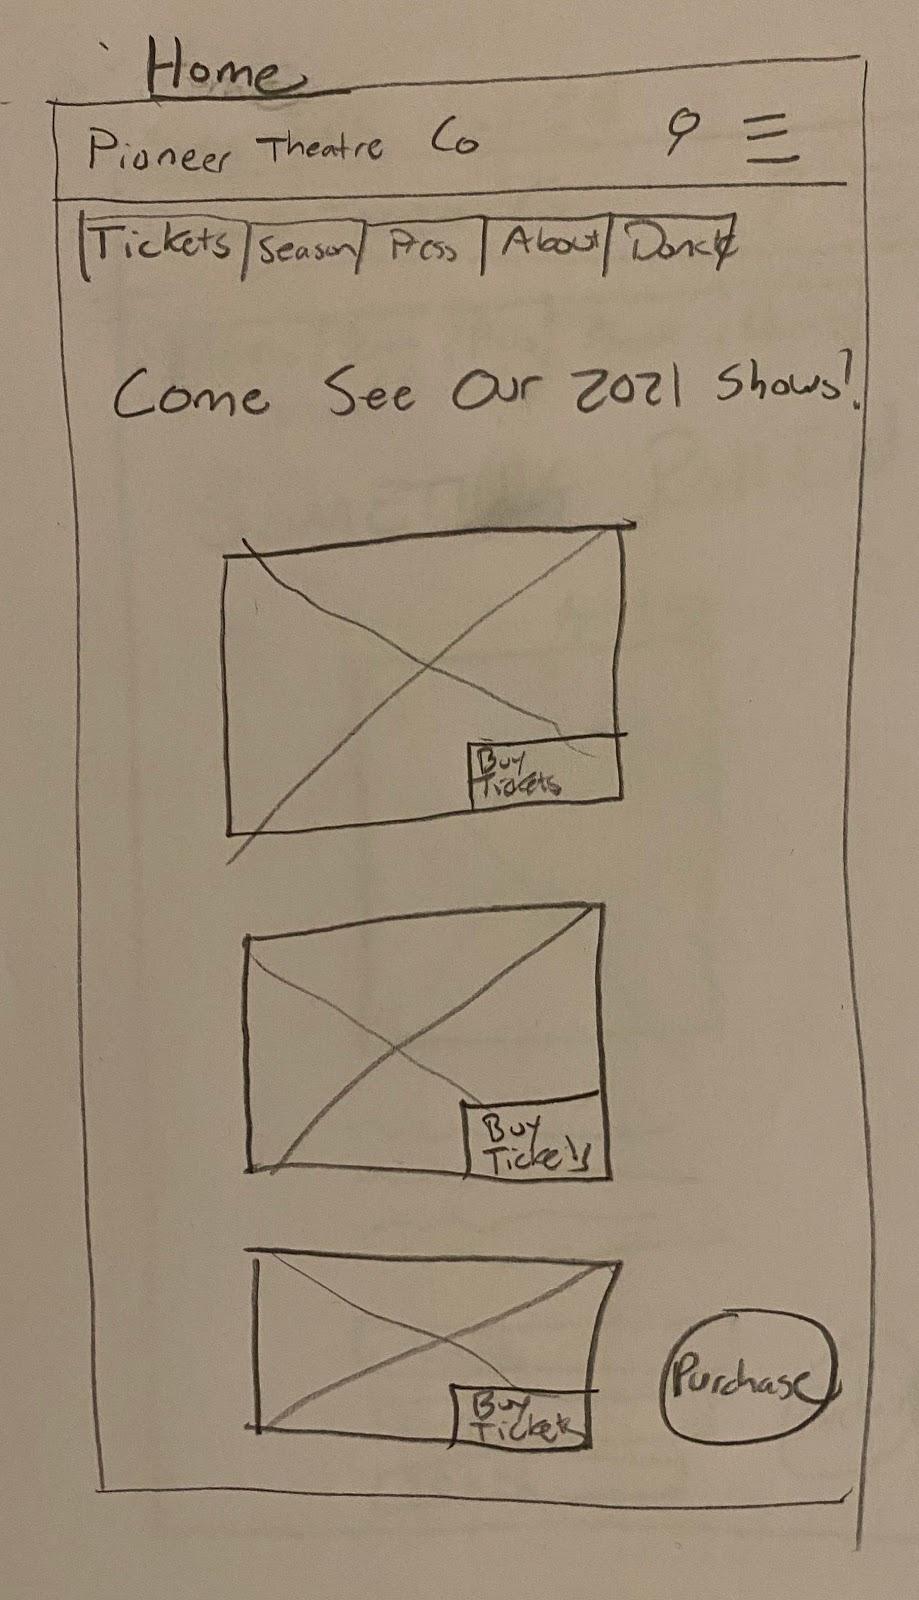 Home
Pioneer Theatre Co
Tickets Season Press About Donate
Come See Our 2021 Shows!
Buy
Tickets
Buy
Tickets
Buy
Tickets
Purchase